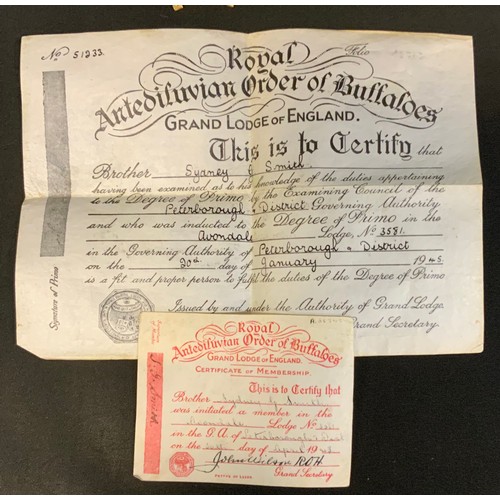 No 51233.
Folio
Royal
Antediluvian Order of Buffaloes
GRAND LODGE OF ENGLAND.
This is to Certify that
Brother Sydney J Smith
having been examined as to his knowledge of the duties appertaining
to the Degree of Primo by the Examining Council of the
Peterborough & District Governing Authority
and who was inducted to the Degree of Primo in the
Avondale Lodge, No 3581.
in the Governing Authority of Peterborough & District
on the 20th day of January 1945.
is a fit and proper person to fulfil the duties of the Degree of Primo
Issued by and under the Authority of Grand Lodge.
Grand Secretary.
Signature of Primo
Royal
Antediluvian Order of Buffaloes
GRAND LODGE OF ENGLAND.
CERTIFICATE OF MEMBERSHIP.
This is to Certify that
Brother Sydney J. Smith
was initiated a member in the
Avondale Lodge No
in the G.A. of Peterborough & Dist
on the day of April 19
John Wilson ROH
Grand Secretary